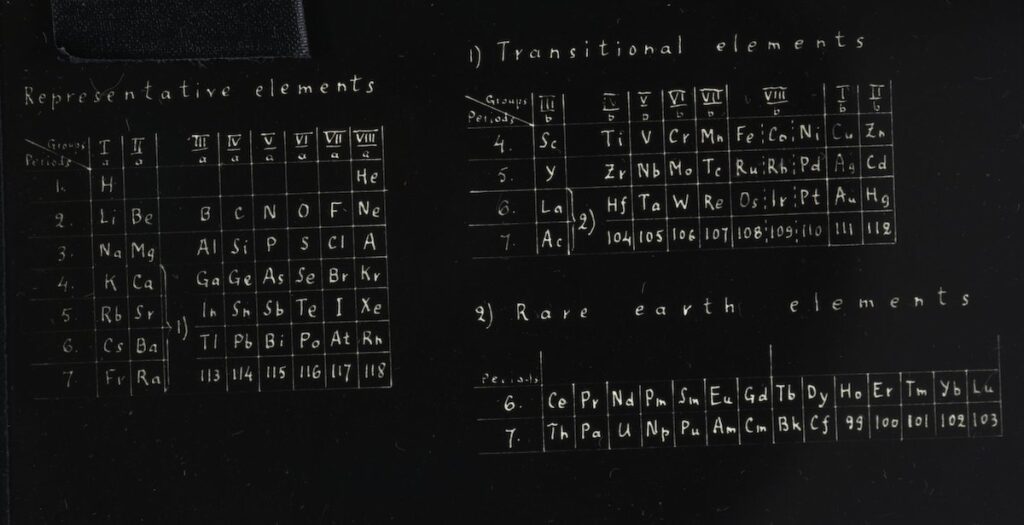 Representative elements
Groups I a II a III a IV a V a VI a VII a VIII a
Periods
1. H He
2. Li Be B C N O F Ne
3. Na Mg Al Si P S Cl A
4. K Ca Ga Ge As Se Br Kr
5 Rb Sr 1) In Sn Sb Te I Xe
6. Cs Ba Tl Pb Bi Po At Rn
7. Fr Ra 113 114 115 116 117 118
1) Transitional elements
Groups III b IV b V b VI b VII b VIII b I b II b
Periods
4. Sc Ti V Cr Mn Fe Co Ni Cu Zn
5. Y Zr Nb Mo Tc Ru Rh Pd Ag Cd
6. La 2) Hf Ta W Re Os Ir Pt Au Hg
7. Ac 104 105 106 107 108 109 110 111 112
2) Rare earth elements
Periods
6. Ce Pr Nd Pm Sm Eu Gd Tb Dy Ho Er Tm Yb Lu
7. Th Pa U Np Pu Am Cm Bk Cf 99 100 101 102 103